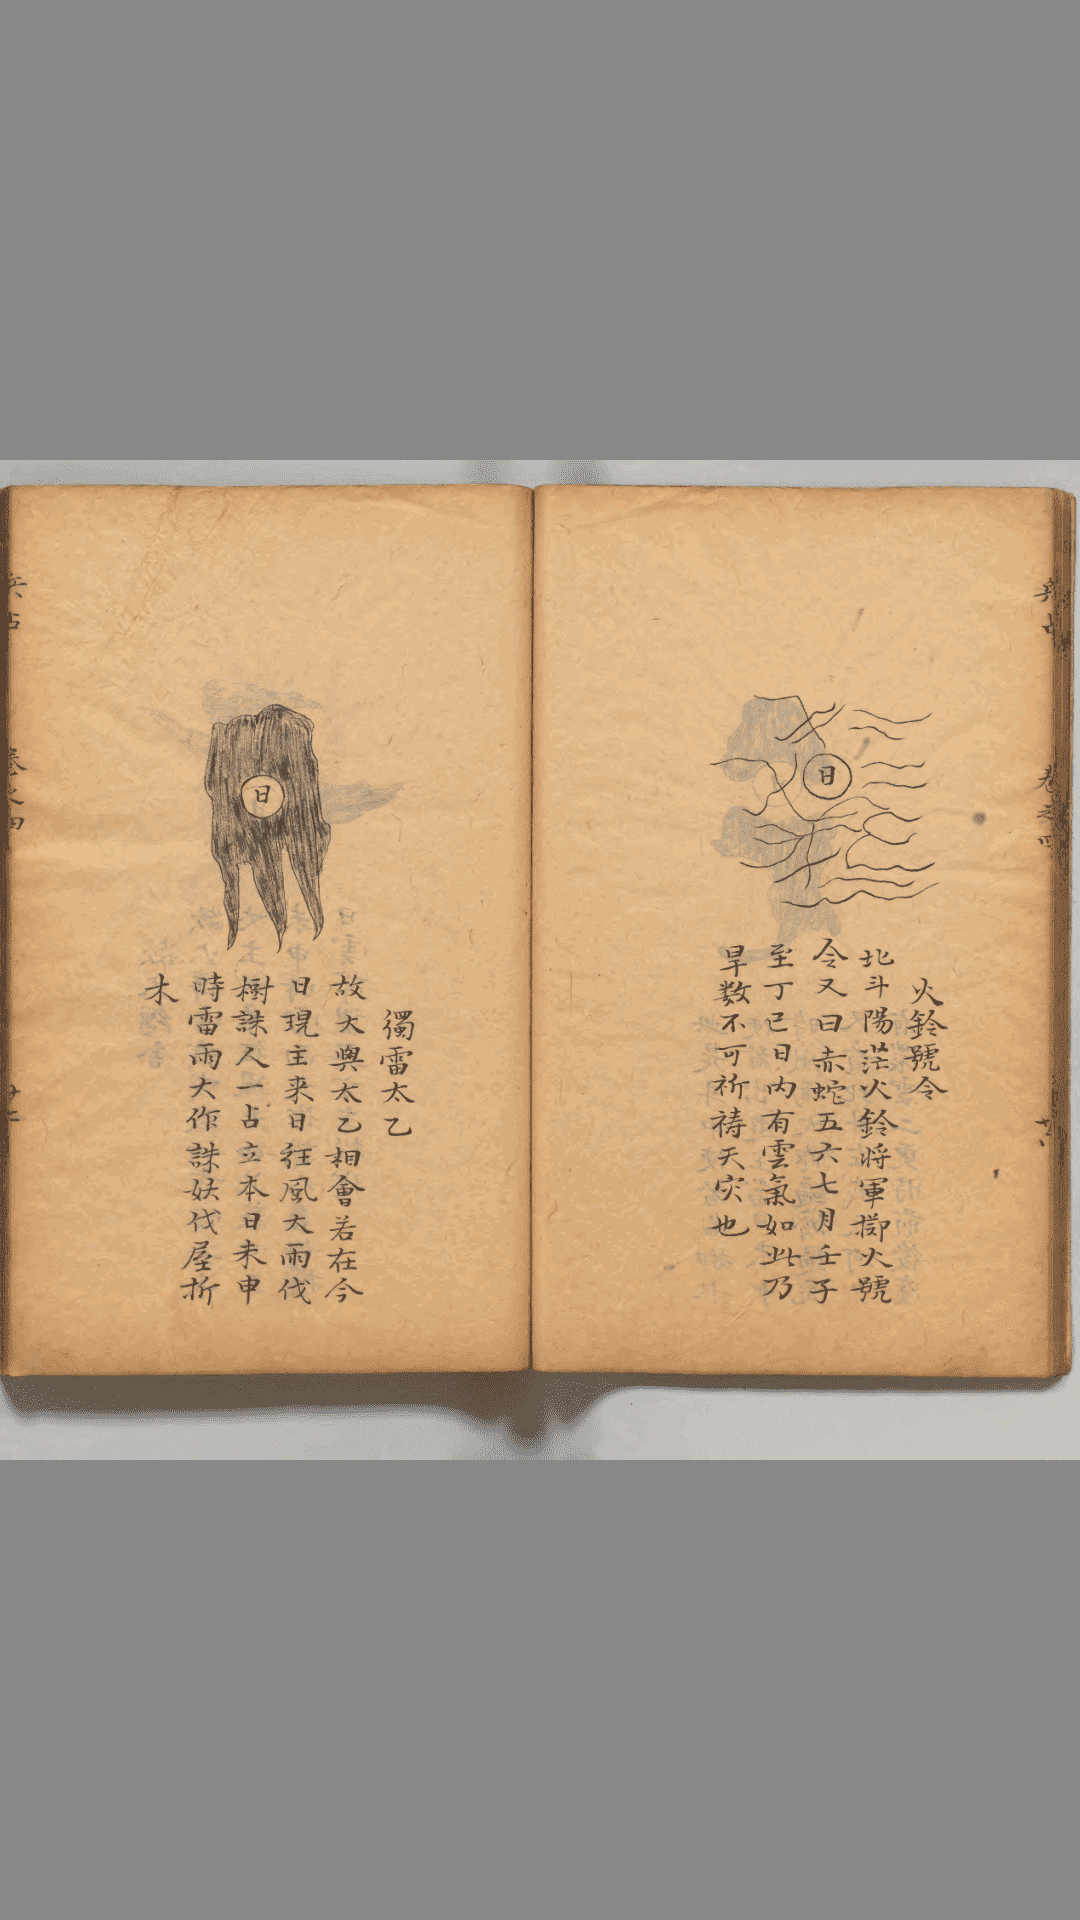 火鈴號令
日
北斗陽茫火鈴将軍擲火號
令又曰赤蛇五六七月壬子
至丁巳日内有雲氣如此乃
旱数不可祈祷天灾也
獨雷太乙
日
故大與太乙相會若在今
日現主来日狂風大雨伐
樹誅人一占立本日未申
時雷雨大作誅妖伐屋折
木
卷之四